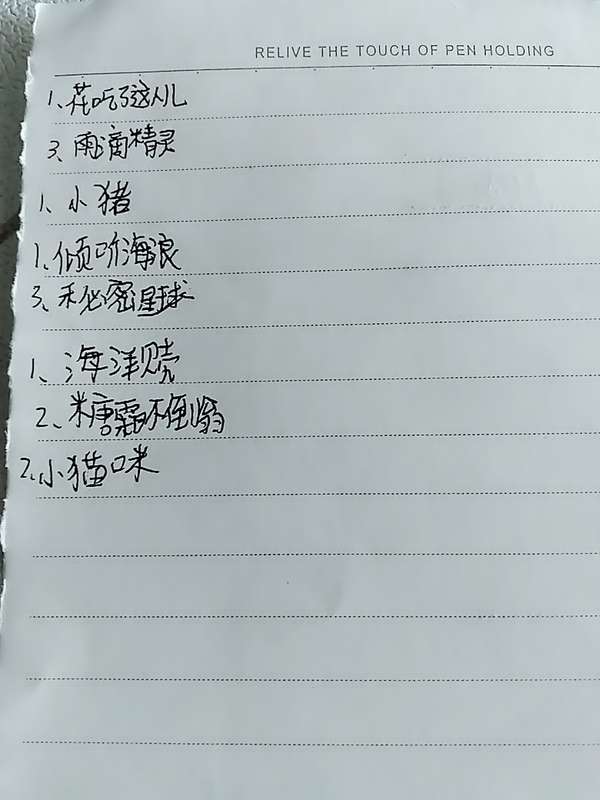 RELIVE THE TOUCH OF PEN HOLDING
1、花吃了这人儿
3、雨滴精灵
1、小猪
1、倾听海浪
3、秘密星球
1、海洋贝壳
2、糖霜不倒翁
2、小猫咪